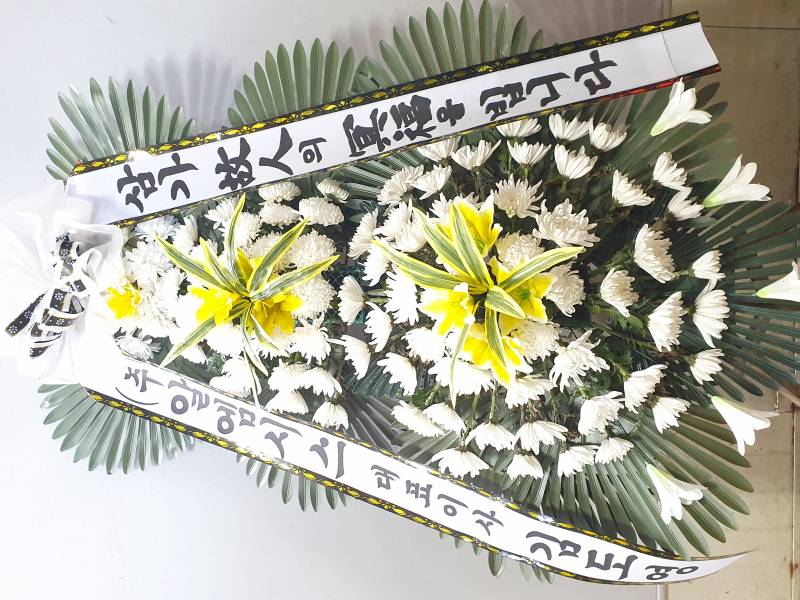 삼가 故人의 冥福을 빕니다
(주)알엠시스 대표이사 김도영